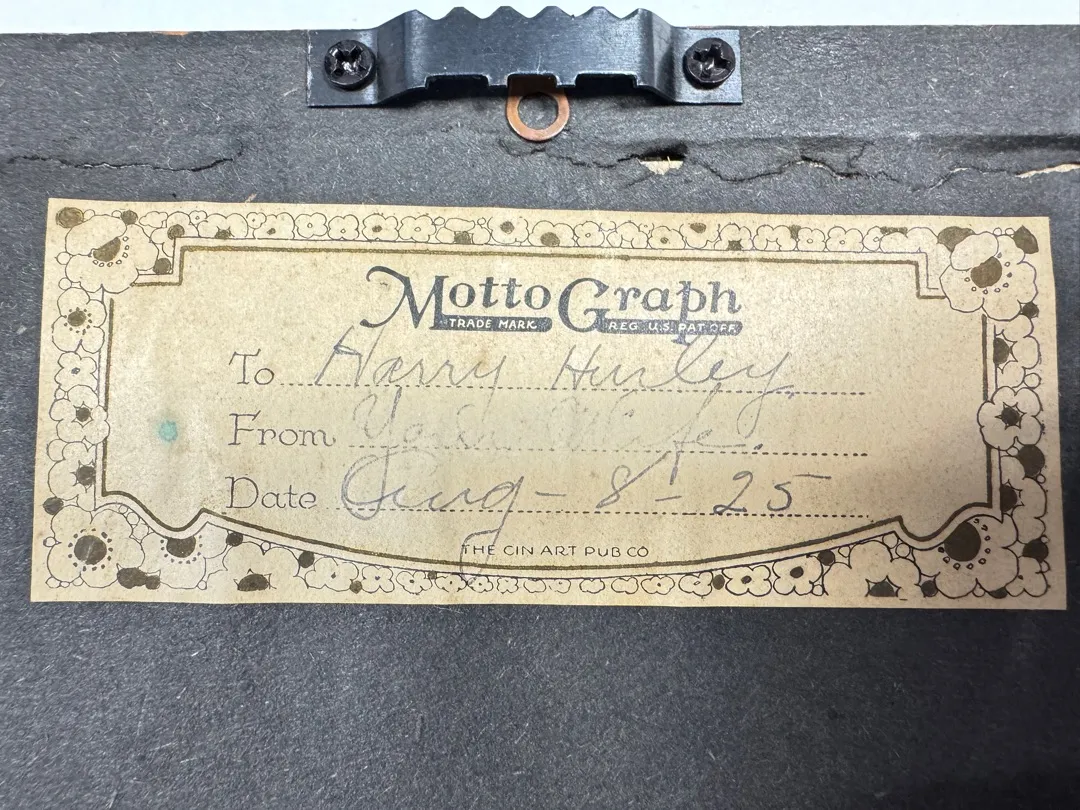 Motto Graph
TRADE MARK REG. U.S. PAT OFF.
To Harry Hurley
From Your Wife.
Date Aug - 8 - 25
THE CIN ART PUB CO